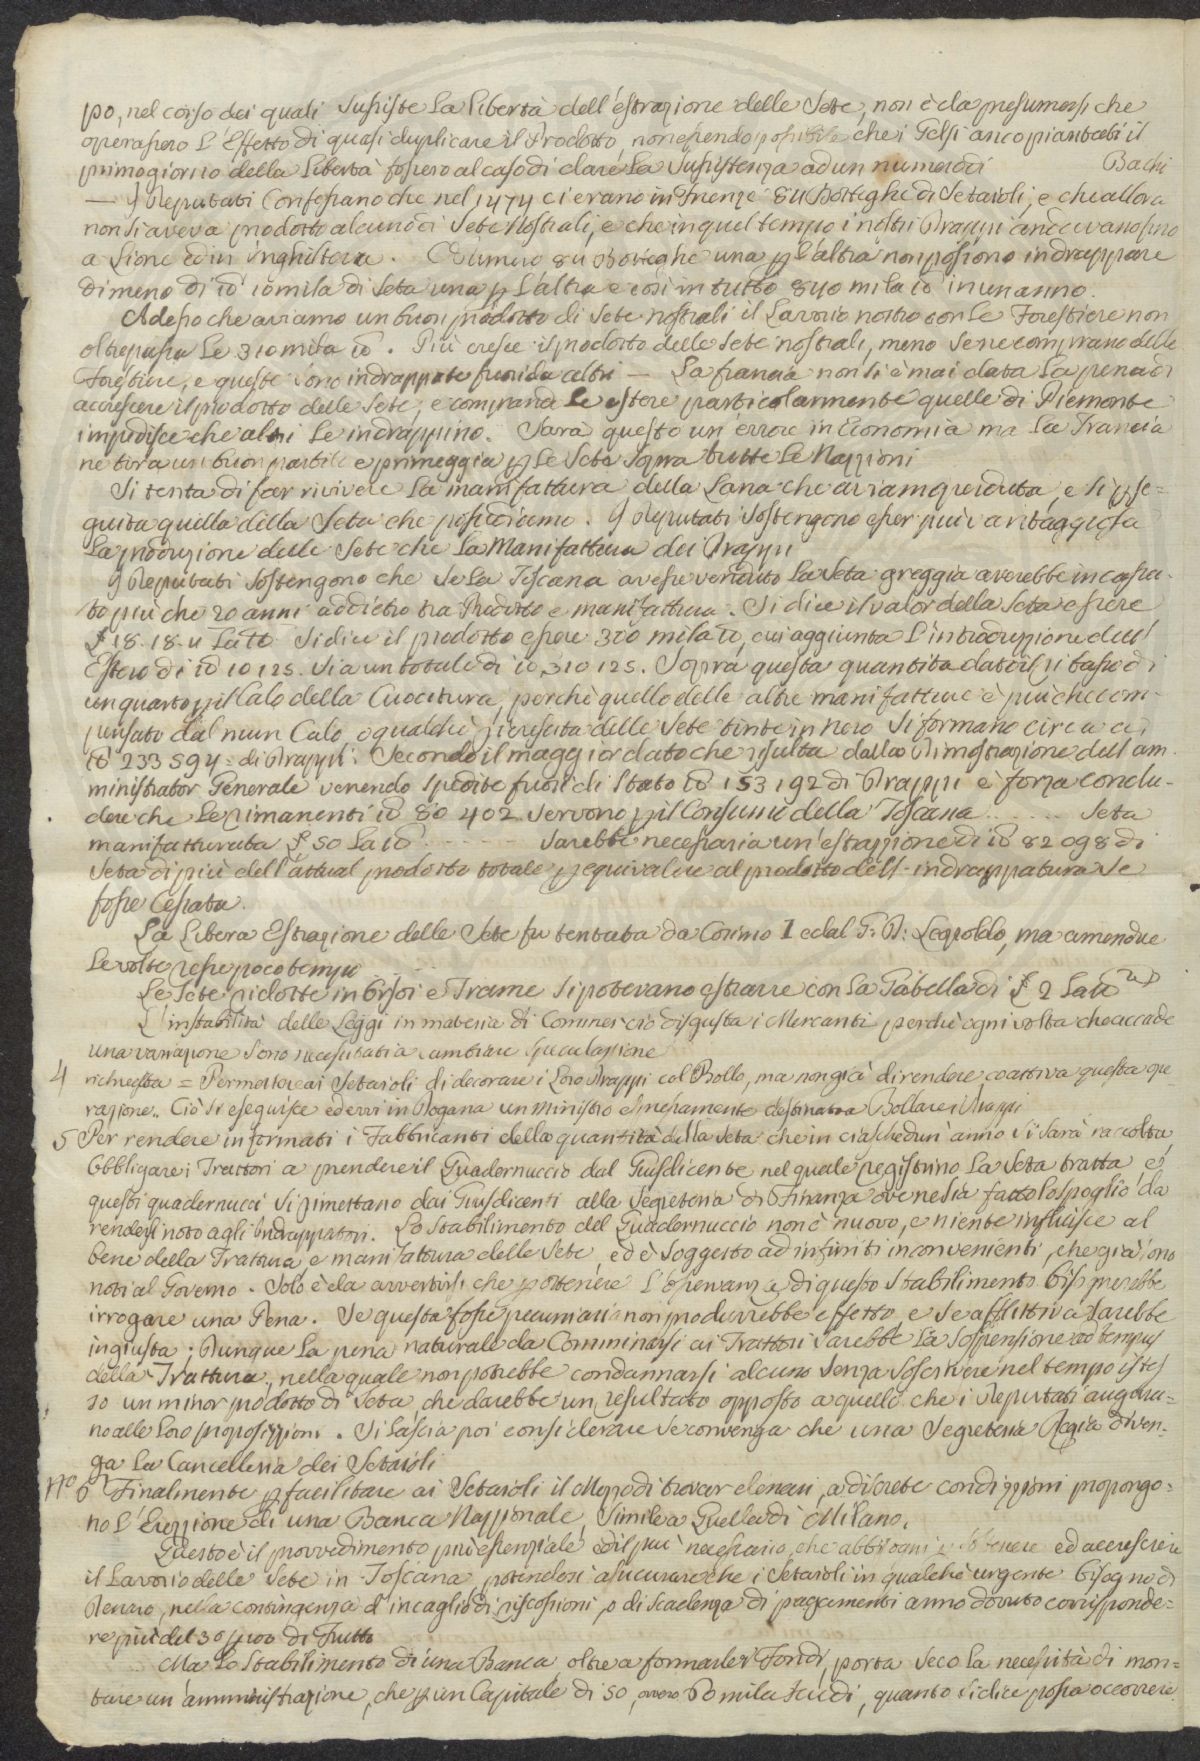 po, nel corso dei quali susiste la libertà dell'estrazione delle Sete, non è da presumersi che
operassero l'Effetto di quasi duplicare il Prodotto, non essendo possibile che i Gelsi anco piantati il
primo giorno della Libertà fossero al caso di dare la susistenza ad un numero di Bachi
— I Deputati Confessano che nel 1474 ci erano in Firenze 84 Botteghe di Setaioli, e che allora
non si aveva prodotto alcuno di Sete Nostrali, e che in quel tempo i nostri Drappi andavano fino
a Lione ed in Inghilterra. Numero 84 Botteghe una p. l'altra non possono indrappare
di meno di lb 10mila di Seta una p. l'altra e così in tutto 840 mila lb in un anno.
Adesso che aviamo un buon prodotto di Sete nostrali il Lavorio nostro con le Forestiere non
oltrepassa le 310 mila lb. Più cresce il prodotto delle Sete nostrali, meno se ne comprano delle
Forestiere, e queste sono indrappate fuori da altri — La francia non si è mai data la pena di
accrescere il prodotto delle Sete, e comprando le estere particolarmente quelle di Piemonte
impedisce che altri le indrappino. Sarà questo un errore in Economia ma la Francia
ne tira un buon partito e primeggia p. le Sete sopra tutte le Nazzioni
Si tenta di far rivivere la manifattura della Lana che aviam perduta, e si p.se=
guita quella della Seta che possediamo. I Deputati sostengono esser più vantaggiosa
la produzione delle Sete che la Manifattura dei Drappi
I Deputati sostengono che se la Toscana avesse venduto la Seta greggia averebbe incassa-
to più che 20 anni addietro tra Prodotto e manifattura. Si dice il valor della Seta essere
£ 18.18.4 la lb Si dice il prodotto essere 300 mila lb, cui aggiunta l'introduzzione dell'
Estero di lb 10125. Si a un totale di lb 310125. Sopra questa quantità datosi il tasso di
un quarto p. il Calo della Cuocitura, perchè quello delle altre manifatture è più che com-
pensato dal niun Calo, o qualche p.crescita delle Sete tinte in nero si formano circa a
lb 233594 = di Drappi: Secondo il maggior dato che risulta dalla Dimostrazione dell'am-
ministrator Generale venendo spedite fuori di Stato lb 153192 di Drappi è forza conclu-
dere che le rimanenti lb 80402 servono p. il Consumo della Toscana ...... Seta
manifatturata £ 50 la lb ...... Sarebbe necessaria un'estrazzione di lb 82098 di
Seta di più dell'attual prodotto totale p. equivalere al prodotto dell'indrappatura se
fosse Cessata.
La Libera Estrazione delle Sete fu tentata da Cosimo I e dal G: D: Leopoldo, ma amendue
le volte resse poco tempo
Le Sete ridotte in Orsoi e Trame si potevano estrarre con la Gabella di £ 2 la lb
L'instabilità delle Leggi in materia di Commercio disgusta i Mercanti perchè ogni volta che accade
una variazione sono necessitati a cambiare Speculazione
4 richiesta = Permettere ai Setaioli di decorare i Loro Drappi col Bollo, ma non già di rendere coattiva questa ope=
razione. Ciò si eseguisce ed evvi in Dogana un ministro espressamente destinato a Bollare i Drappi
5 Per rendere informati i Fabbricanti della quantità della Seta che in ciaschedun'anno si sarà raccolta,
Obbligare i Trattori a prendere il Quadernuccio dal Giusdicente nel quale registrino la Seta tratta e
questi quadernucci si rimettano dai Giusdicenti alla Segreteria di Finanza ove ne sia fatto lo spoglio da
rendersi noto agli Indrappatori. Lo Stabilimento del Quadernuccio non è nuovo, e niente influisce al
bene della Trattura, e manifattura delle Sete, ed è soggetto ad infiniti inconvenienti, che già sono
noti al Governo. Solo è da avvertirsi che p. ottenere l'osservanza di questo Stabilimento bisognerebbe
irrogare una Pena. Se questa fosse pecuniaria non produrrebbe effetto, e se afflittiva sarebbe
ingiusta; Dunque la pena naturale da Comminarsi ai Trattori sarebbe la Sospensione ad tempus
della Trattura, nella quale non potrebbe condannarsi alcuno senza soscrivere nel tempo istes
so un minor prodotto di Seta, che darebbe un resultato opposto a quello che i Deputati augura=
no alle Loro proposizzioni. Si lascia poi considerare se convenga che una Segreteria Regia diven-
ga la Cancelleria dei Setaioli
N.o 6 Finalmente p. facilitare ai Setaioli il Mezzo di trovar denari, a discrete condizzioni propongo=
no l'Erezzione di una Banca Nazzionale, simile a Quella di Milano.
Questo è il provvedimento più essenziale, ed il più necessario, che abbisogni p. sostenere ed accrescere
il Lavorio delle Sete in Toscana, potendosi assicurare che i Setaioli in qualche urgente bisogno di
Denaro, nella contingenza d'incaglio di riscossioni, o di scadenza di pagamenti anno dovuto corrisponde=
re più del 30 p. 100 di Frutto
Ma lo Stabilimento di una Banca, oltre a formarle i Fondi, porta seco la necessità di mon-
tare un'amministrazione, che p. un Capitale di 50, ovvero 60 mila scudi, quanto si dice possa occorrere